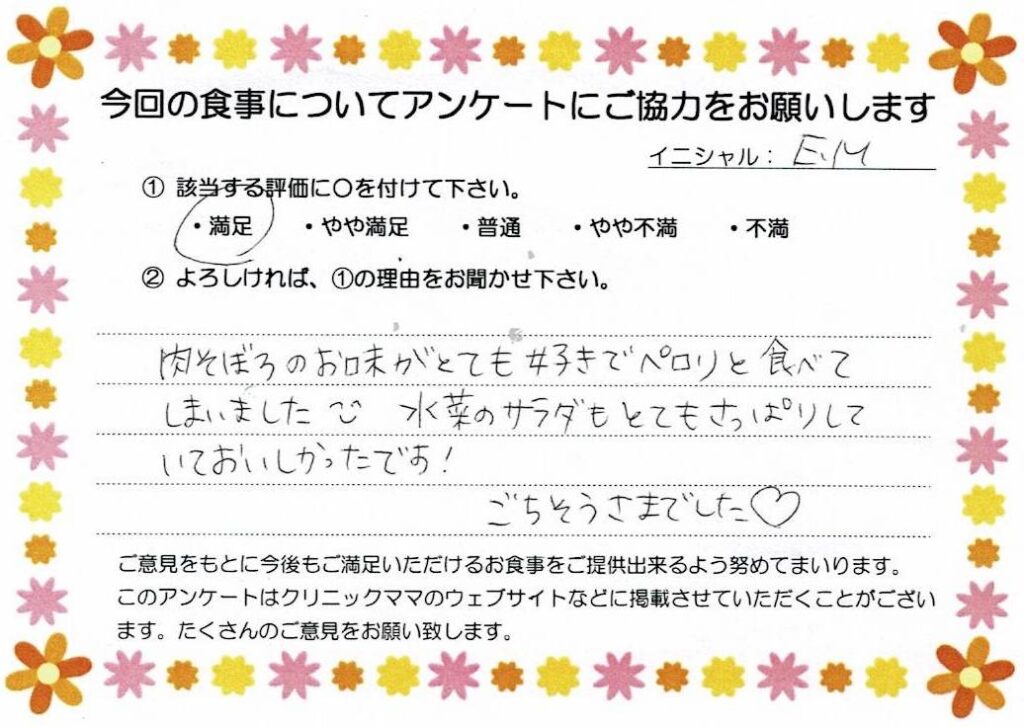 今回の食事についてアンケートにご協力をお願いします
イニシャル： E.M
① 該当する評価に〇を付けて下さい。
・満足 ・やや満足 ・普通 ・やや不満 ・不満
② よろしければ、①の理由をお聞かせ下さい。
肉そぼろのお味がとても好きでペロリと食べて
しまいました 水菜のサラダもとてもさっぱりして
いておいしかったです！
ごちそうさまでした♡
ご意見をもとに今後もご満足いただけるお食事をご提供出来るよう努めてまいります。
このアンケートはクリニックママのウェブサイトなどに掲載させていただくことがござい
ます。たくさんのご意見をお願い致します。